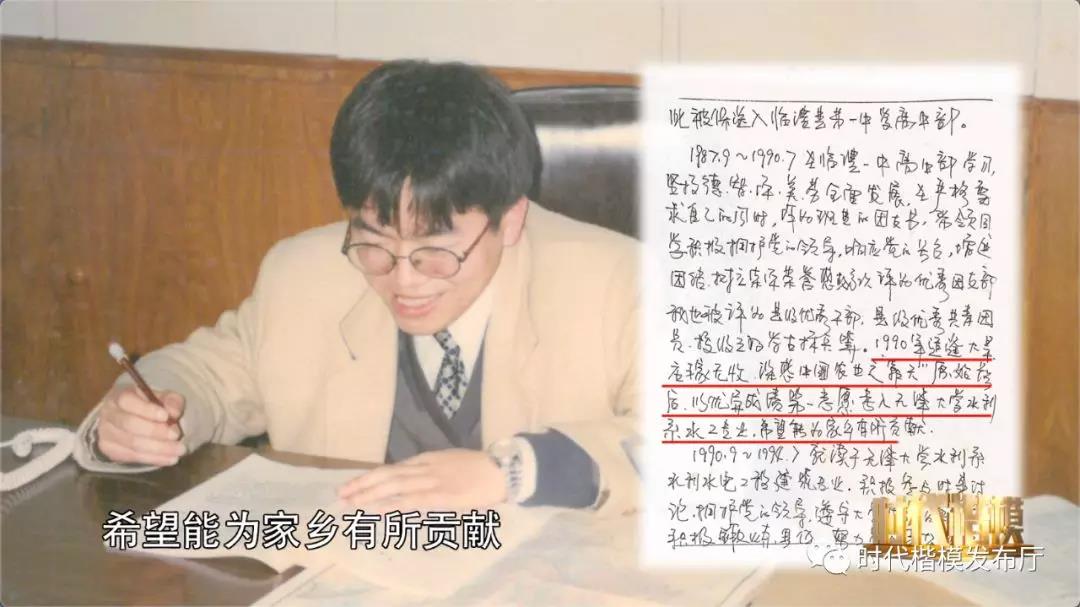 此被保送入临澧县第一中学高中部。
1987.9~1990.7在临澧一中高中部学习,
坚持德、智、体、美、劳全面发展,在严格要
求自己的同时,作为班里的团支书,带领同
学积极拥护党的领导,响应党的号召,增进
团结,树立集体荣誉感,评为优秀团支部
我也被评为县级优秀干部、县级优秀共青团
员、1990年适逢大旱
庄稼无收,深感中国农业之“靠天”原始落
后,以优异成绩第一志愿考入天津大学水利
系水工专业,希望能为家乡有所贡献.
1990.9~1994.7就读于天津大学水利系
水利水电工程建筑专业.积极参与时事讨
论,拥护党的领导,遵守大
积极锻炼身体,努力
希望能为家乡有所贡献
时代楷模
时代楷模发布厅